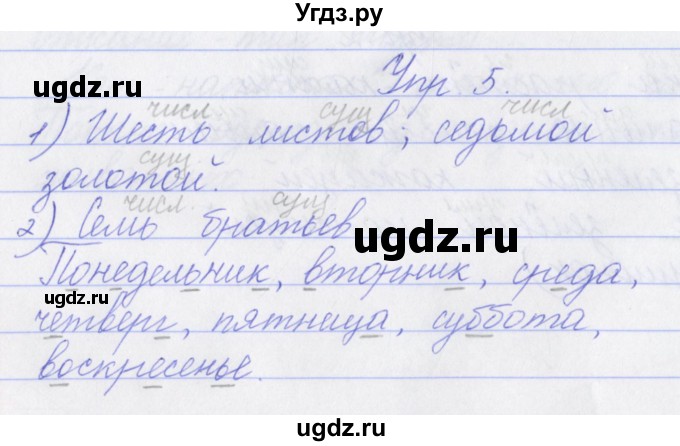 Угдз.ру
Упр. 5.
ugdz.ru
числ. сущ числ.
1) Шесть листов; седьмой
сущ
золотой.
числ. сущ
2) Семь братьев
ugdz.ru
Понедельник, вторник, среда,
ugdz.ru
четверг, пятница, суббота,
воскресенье.
ugdz.ru